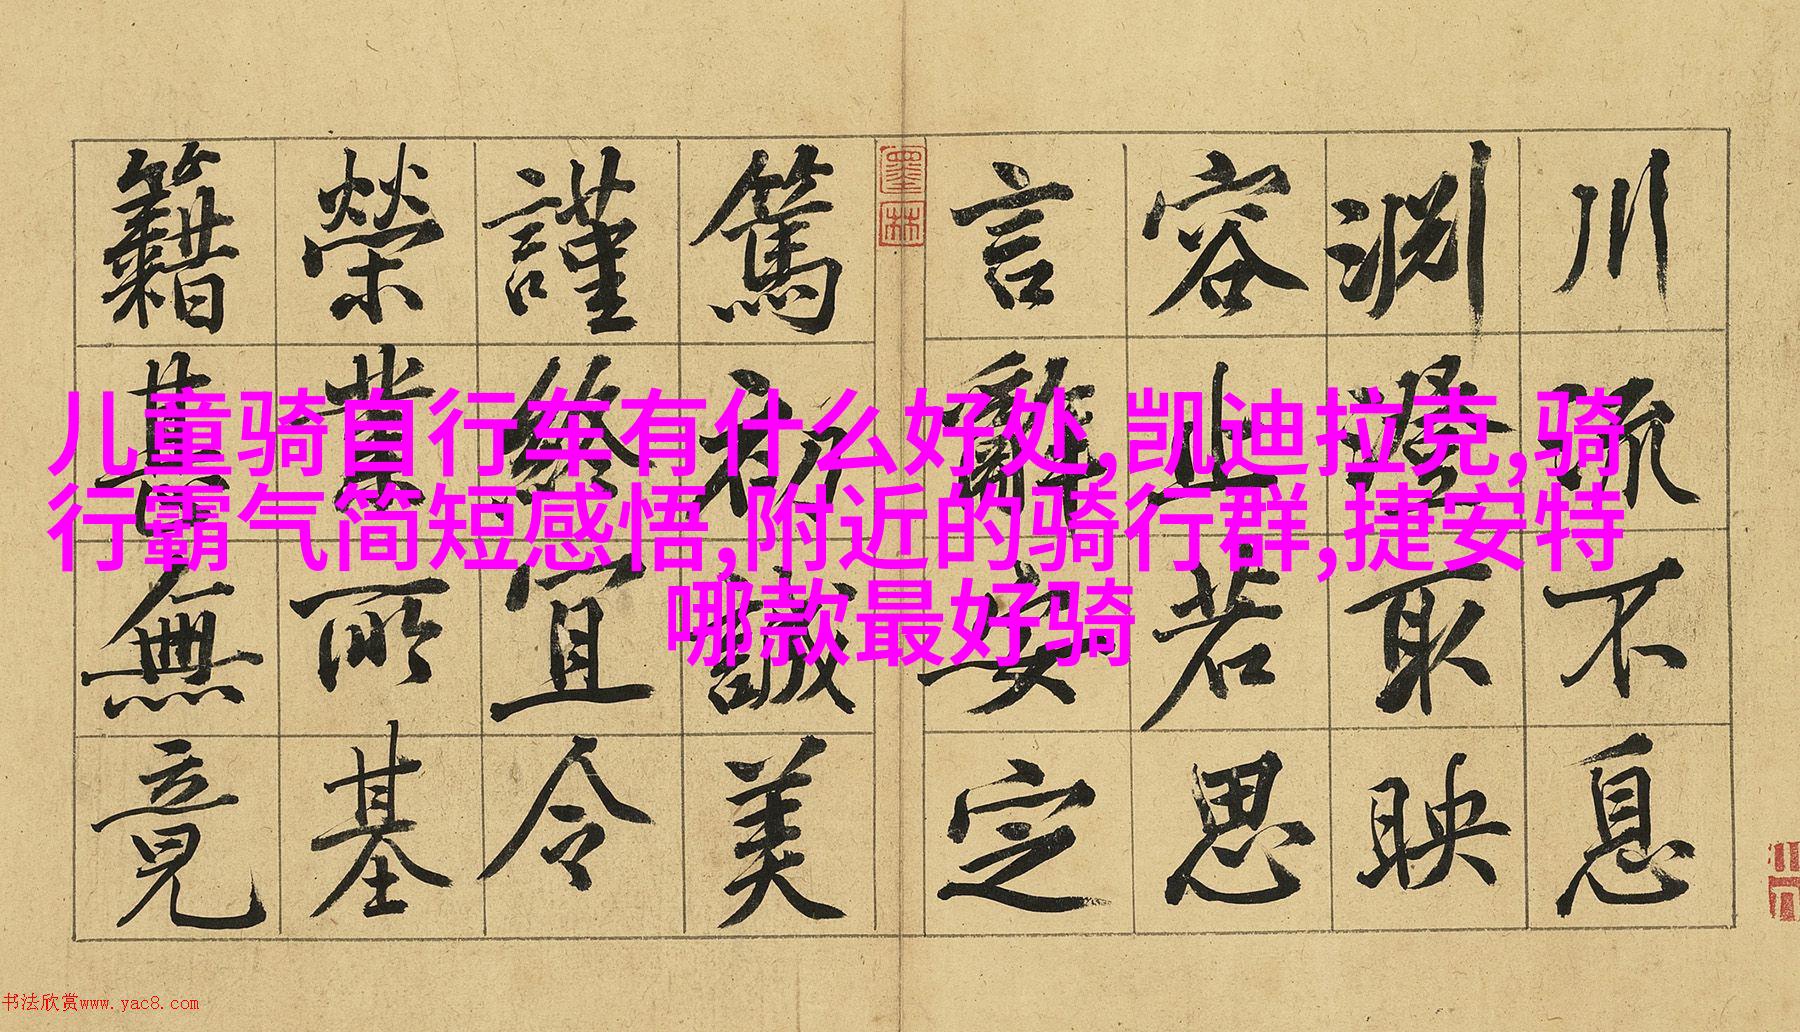 川流不息
淵澄取映
容止若思
言辭安定
墨林
篤初誠美
謹終宜令
榮業所基
籍甚無竟
儿童骑自行车有什么好处,凯迪拉克,骑
行霸气简短感悟,附近的骑行群,捷安特
哪款最好骑
书法欣赏www.yac8.com